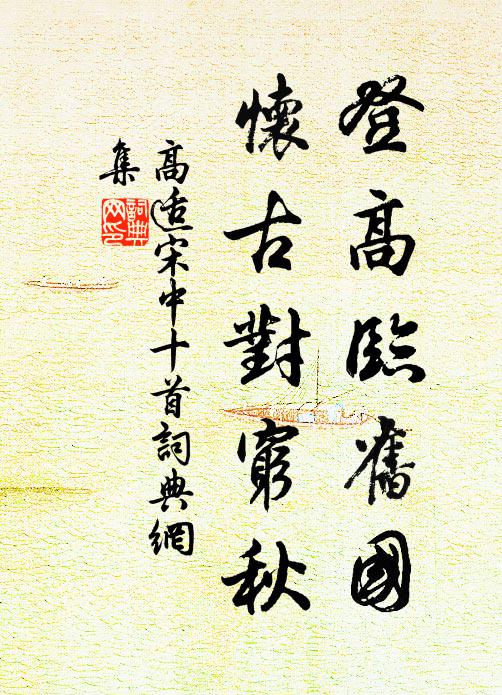 登高臨舊國
懷古對窮秋
高適宋中十首詞典網
集
詞典
网印